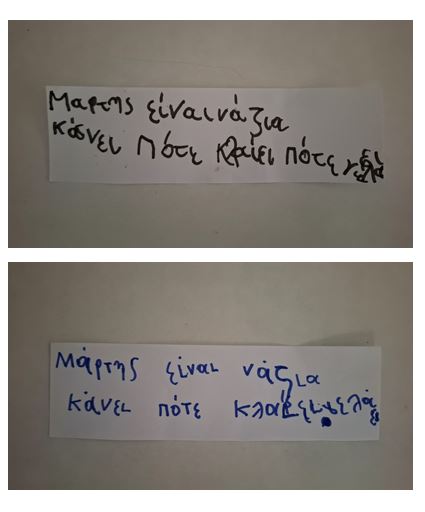 Μαρτης είναι νάζια
κάνει Πότε κλαίει πότε γελά
Μάρτης είναι νάζια
κάνει πότε κλαίει γελά